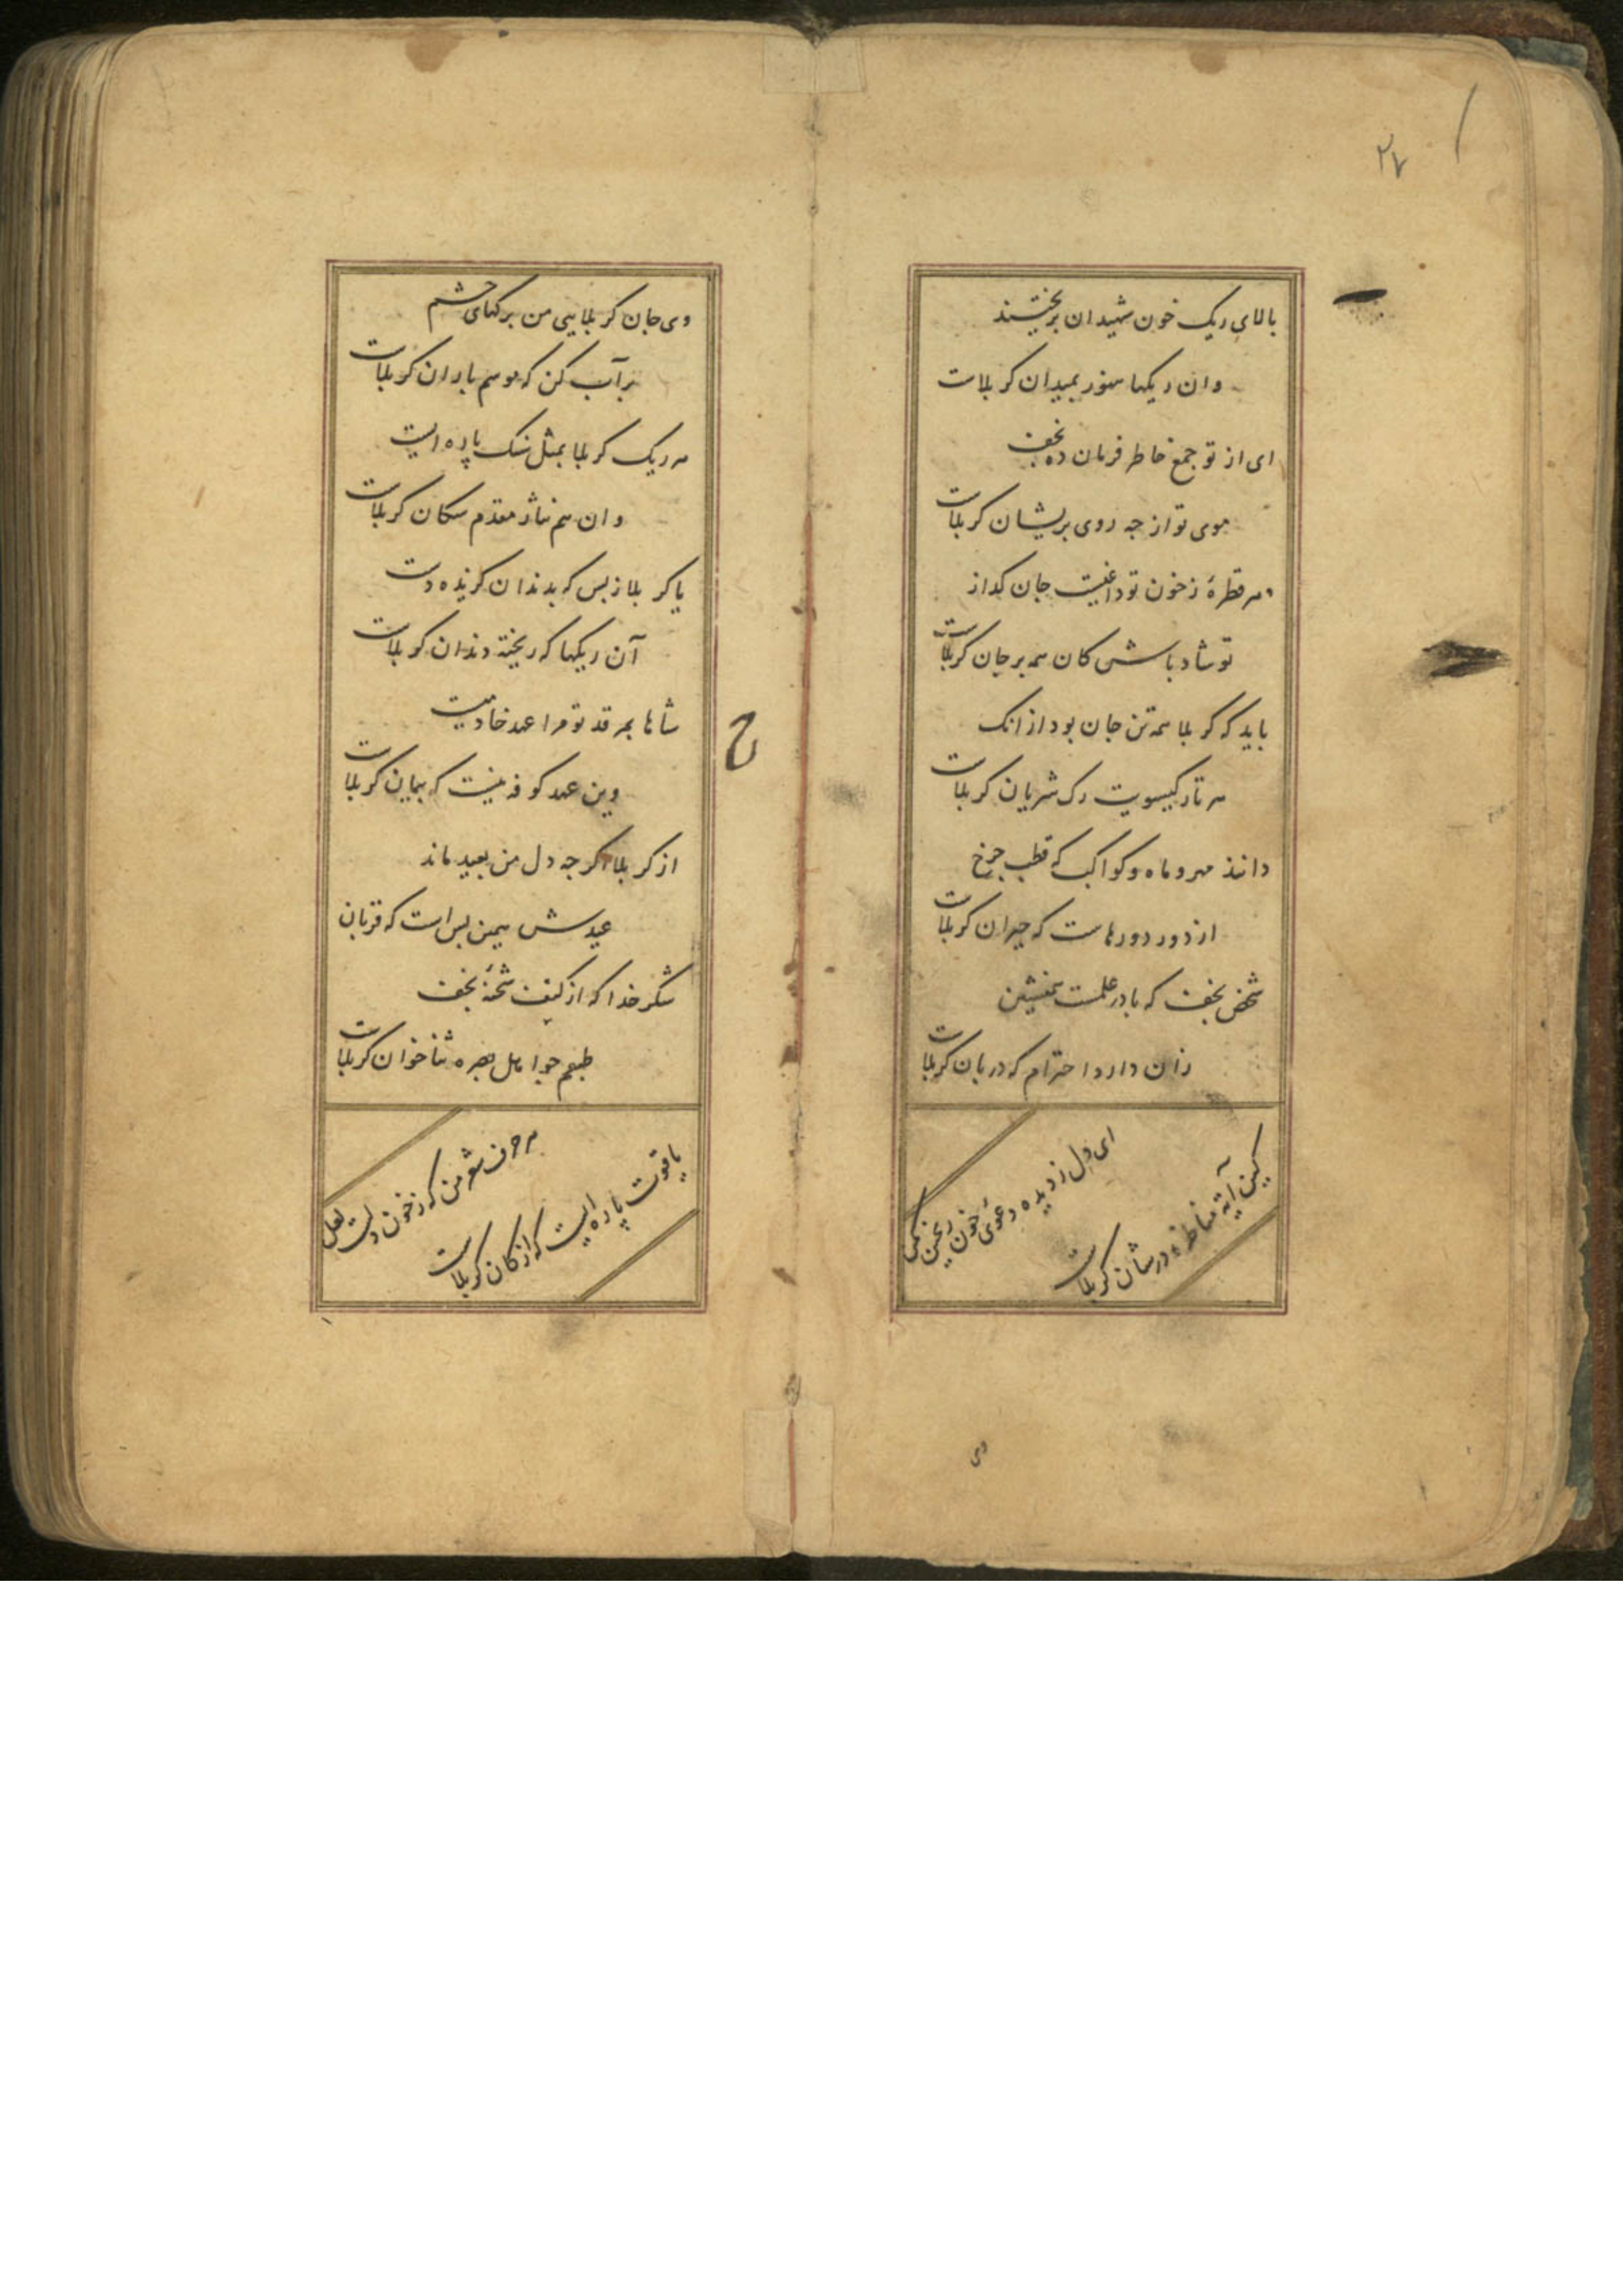 ۲۷
بالای ریک خون شهیدان بریختند
وان ریکها هنوز بمیدان کربلاست
ای از تو جمع خاطر فرمان ده نجف
موی تو از چه روی پریشان کربلاست
هر قطرهٔ ز خون تو داغیست جان کداز
تو شاد باش کان همه بر جان کربلاست
باید که کربلا همه تن جان بود از انک
هر تار کیسویت رک شریان کربلاست
دانند مهر و ماه و کواکب که قطب چرخ
از دور دورهاست که حیران کربلاست
شخص نجف که با در علمست همنشین
زان دارد احترام که دربان کربلاست
ای دل ز دیده دعوی خون ریختن مکن
کین آیه مناظره در شان کربلاست
وی
وی جان کربلایی من برکهای چشم
پر آب کن که موسم باران کربلاست
هر ریک کربلا بمثل سنک پاره ایست
وان هم نثار مقدم سکان کربلاست
یا کربلا ز بس که بدندان کزیده دست
آن ریکها که ریخته دندان کربلاست
شاها بمرقد تو مرا عهد خادمیست
وین عهد کوفه نیست که پیمان کربلاست
از کربلا اکر چه دل من بعید ماند
عیدش همین بس است که قربان
شکر خدا که از کنف شحنهٔ نجف
طبعم چو اهل بصره ثنا خوان کربلاست
هر حرف شعر من که ز خون دلست لعل
یاقوت پاره ایست که از کان کربلاست